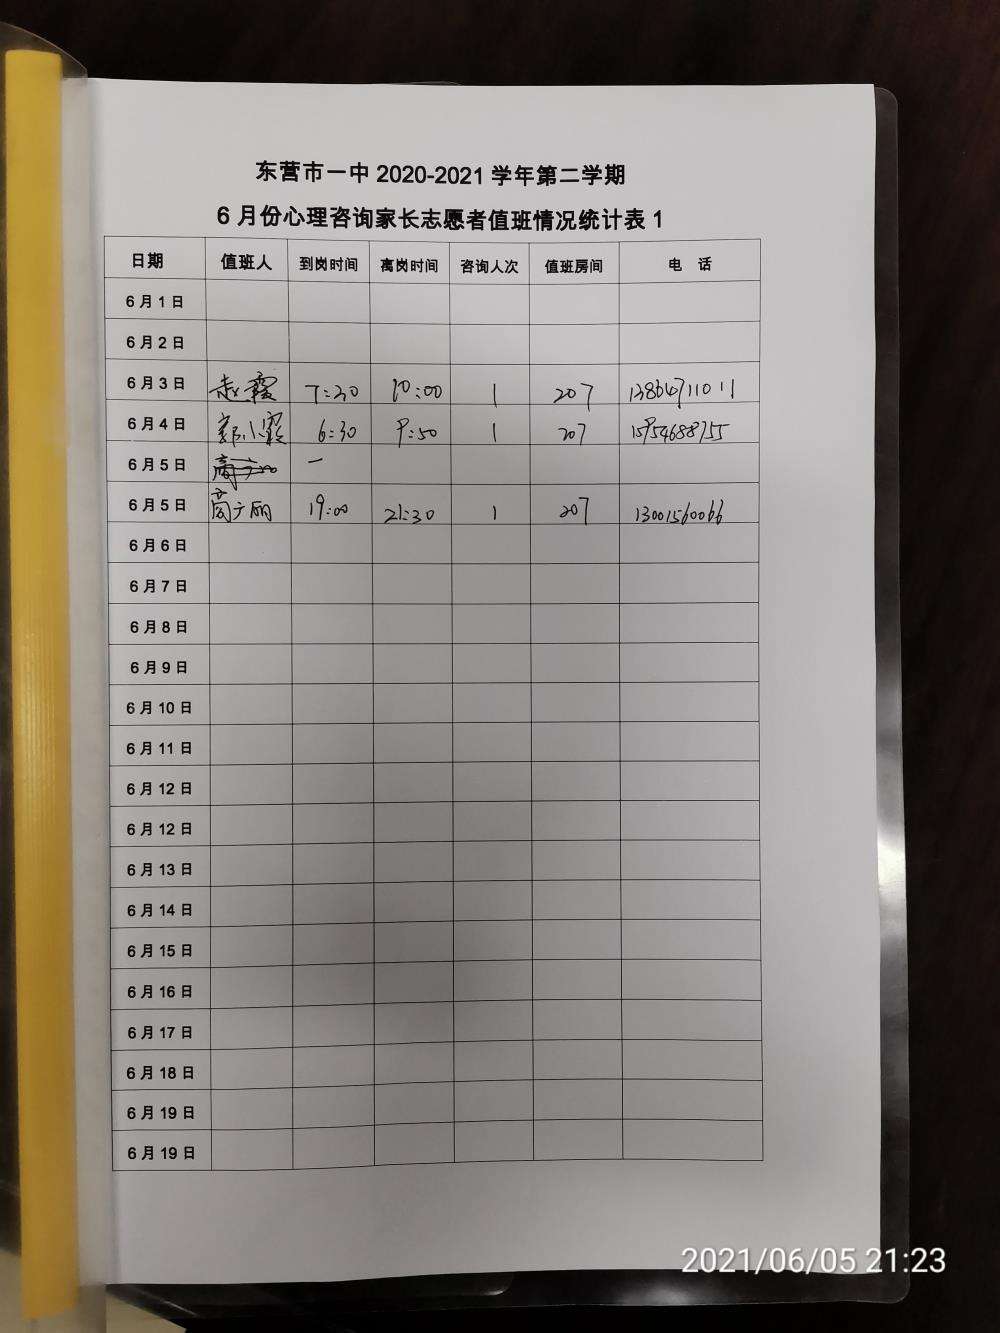 东营市一中 2020-2021 学年第二学期
6 月份心理咨询家长志愿者值班情况统计表 1
日期 值班人 到岗时间 离岗时间 咨询人次 值班房间 电 话
6 月 1 日
6 月 2 日
6 月 3 日 赵霞 7:30 10:00 1 207 13864711011
6 月 4 日 郭小霞 6:30 9:50 1 207 15954688755
6 月 5 日
6 月 5 日 高广丽 19:00 21:30 1 207 13001560066
6 月 6 日
6 月 7 日
6 月 8 日
6 月 9 日
6 月 10 日
6 月 11 日
6 月 12 日
6 月 12 日
6 月 13 日
6 月 14 日
6 月 15 日
6 月 16 日
6 月 17 日
6 月 18 日
6 月 19 日
6 月 19 日
2021/06/05 21:23